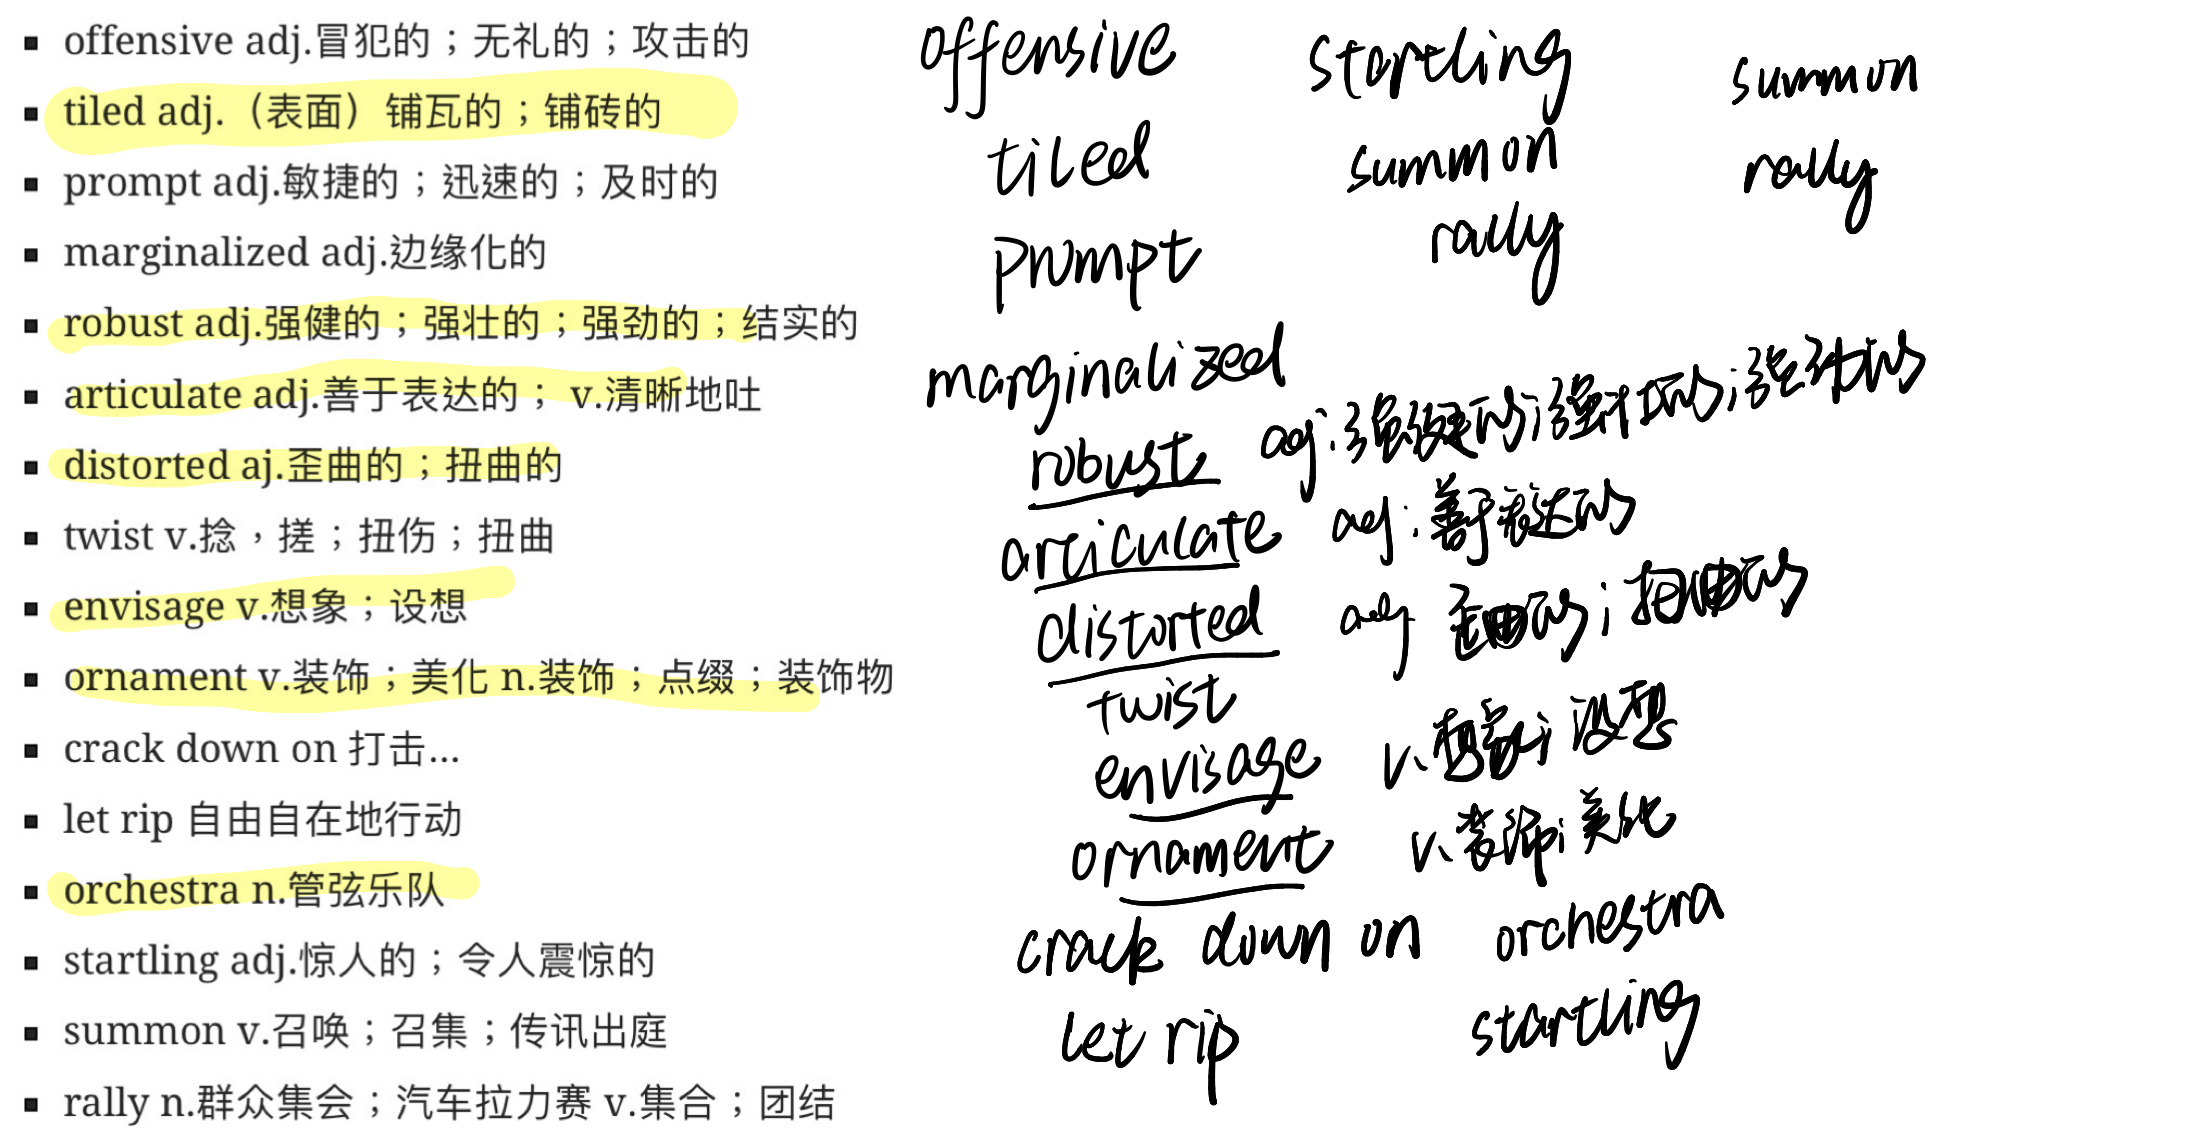 ▪ offensive adj.冒犯的；无礼的；攻击的
▪ tiled adj.（表面）铺瓦的；铺砖的
▪ prompt adj.敏捷的；迅速的；及时的
▪ marginalized adj.边缘化的
▪ robust adj.强健的；强壮的；强劲的；结实的
▪ articulate adj.善于表达的； v.清晰地吐
▪ distorted aj.歪曲的；扭曲的
▪ twist v.捻，搓；扭伤；扭曲
▪ envisage v.想象；设想
▪ ornament v.装饰；美化 n.装饰；点缀；装饰物
▪ crack down on 打击...
▪ let rip 自由自在地行动
▪ orchestra n.管弦乐队
▪ startling adj.惊人的；令人震惊的
▪ summon v.召唤；召集；传讯出庭
▪ rally n.群众集会；汽车拉力赛 v.集合；团结
offensive startling summon
tiled summon rally
prompt rally
marginalized
robust adj.强健的；强壮的；强劲的
articulate adj.善于表达的
distorted adj 歪曲的；扭曲的
twist
envisage v.想象；设想
ornament v.装饰；美化
crack down on orchestra
let rip startling